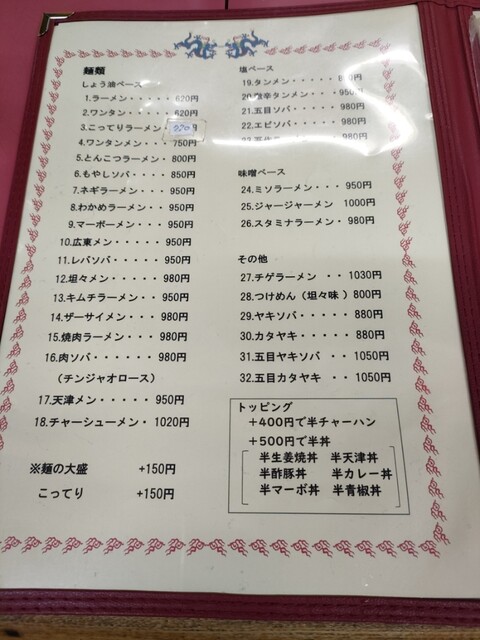 麺類
しょう油ベース
1.ラーメン・・・・・620円
2.ワンタン・・・・・620円
3.こってりラーメン 770円
4.ワンタンメン・・・・750円
5.とんこつラーメン・・800円
6.もやしソバ・・・・850円
7.ネギラーメン・・・950円
8.わかめラーメン・・・950円
9.マーボーメン・・・950円
10.広東メン・・・・・950円
11.レバソバ・・・・・950円
12.坦々メン・・・・・980円
13.キムチラーメン・・950円
14.ザーサイメン・・・980円
15.焼肉ラーメン・・・980円
16.肉ソバ・・・・・・980円
(チンジャオロース)
17.天津メン・・・・950円
18.チャーシューメン・1020円
※麺の大盛 +150円
こってり +150円
塩ベース
19.タンメン・・・・・
20.激辛タンメン・・・950円
21.五目ソバ・・・・・980円
22.エビソバ・・・・・980円
980円
味噌ベース
24.ミソラーメン・・・950円
25.ジャージャーメン 1000円
26.スタミナラーメン・980円
その他
27.チゲラーメン・・・1030円
28.つけめん(坦々味)800円
29.ヤキソバ・・・・・880円
30.カタヤキ・・・・・880円
31.五目ヤキソバ・・・1050円
32.五目カタヤキ・・・1050円
トッピング
+400円で半チャーハン
+500円で半丼
半生姜焼丼 半天津丼
半酢豚丼 半カレー丼
半マーボ丼 半青椒丼